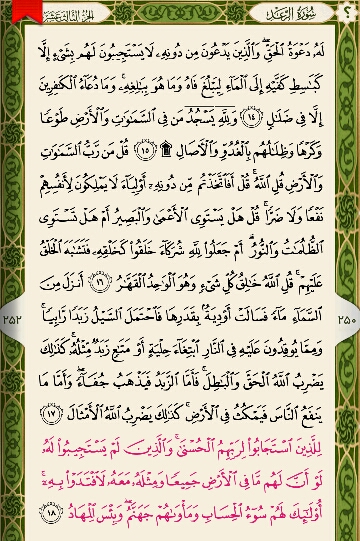 سُورَةُ الرَّعْدِ
الجزء الثالث عشر
لَهُۥ دَعْوَةُ ٱلْحَقِّ ۖ وَٱلَّذِينَ يَدْعُونَ مِن دُونِهِۦ لَا يَسْتَجِيبُونَ لَهُم بِشَىْءٍ إِلَّا
كَبَٰسِطِ كَفَّيْهِ إِلَى ٱلْمَآءِ لِيَبْلُغَ فَاهُ وَمَا هُوَ بِبَٰلِغِهِۦ ۚ وَمَا دُعَآءُ ٱلْكَٰفِرِينَ
إِلَّا فِى ضَلَٰلٍ ١٤ وَلِلَّهِ يَسْجُدُ مَن فِى ٱلسَّمَٰوَٰتِ وَٱلْأَرْضِ طَوْعًا
وَكَرْهًا وَظِلَٰلُهُم بِٱلْغُدُوِّ وَٱلْءَاصَالِ ۩ ١٥ قُلْ مَن رَّبُّ ٱلسَّمَٰوَٰتِ
وَٱلْأَرْضِ قُلِ ٱللَّهُ ۚ قُلْ أَفَٱتَّخَذْتُم مِّن دُونِهِۦٓ أَوْلِيَآءَ لَا يَمْلِكُونَ لِأَنفُسِهِمْ
نَفْعًا وَلَا ضَرًّا ۚ قُلْ هَلْ يَسْتَوِى ٱلْأَعْمَىٰ وَٱلْبَصِيرُ أَمْ هَلْ تَسْتَوِى
ٱلظُّلُمَٰتُ وَٱلنُّورُ ۗ أَمْ جَعَلُوا۟ لِلَّهِ شُرَكَآءَ خَلَقُوا۟ كَخَلْقِهِۦ فَتَشَٰبَهَ ٱلْخَلْقُ
عَلَيْهِمْ ۚ قُلِ ٱللَّهُ خَٰلِقُ كُلِّ شَىْءٍ وَهُوَ ٱلْوَٰحِدُ ٱلْقَهَّٰرُ ١٦ أَنزَلَ مِنَ
ٱلسَّمَآءِ مَآءً فَسَالَتْ أَوْدِيَةٌۢ بِقَدَرِهَا فَٱحْتَمَلَ ٱلسَّيْلُ زَبَدًا رَّابِيًا ۚ
وَمِمَّا يُوقِدُونَ عَلَيْهِ فِى ٱلنَّارِ ٱبْتِغَآءَ حِلْيَةٍ أَوْ مَتَٰعٍ زَبَدٌ مِّثْلُهُۥ ۚ كَذَٰلِكَ
يَضْرِبُ ٱللَّهُ ٱلْحَقَّ وَٱلْبَٰطِلَ ۚ فَأَمَّا ٱلزَّبَدُ فَيَذْهَبُ جُفَآءً ۖ وَأَمَّا مَا
يَنفَعُ ٱلنَّاسَ فَيَمْكُثُ فِى ٱلْأَرْضِ ۚ كَذَٰلِكَ يَضْرِبُ ٱللَّهُ ٱلْأَمْثَالَ ١٧
لِلَّذِينَ ٱسْتَجَابُوا۟ لِرَبِّهِمُ ٱلْحُسْنَىٰ ۚ وَٱلَّذِينَ لَمْ يَسْتَجِيبُوا۟ لَهُۥ
لَوْ أَنَّ لَهُم مَّا فِى ٱلْأَرْضِ جَمِيعًا وَمِثْلَهُۥ مَعَهُۥ لَٱفْتَدَوْا۟ بِهِۦٓ ۚ
أُو۟لَٰٓئِكَ لَهُمْ سُوٓءُ ٱلْحِسَابِ وَمَأْوَىٰهُمْ جَهَنَّمُ ۖ وَبِئْسَ ٱلْمِهَادُ ١٨
٢٥٠
٢٥٢
؟